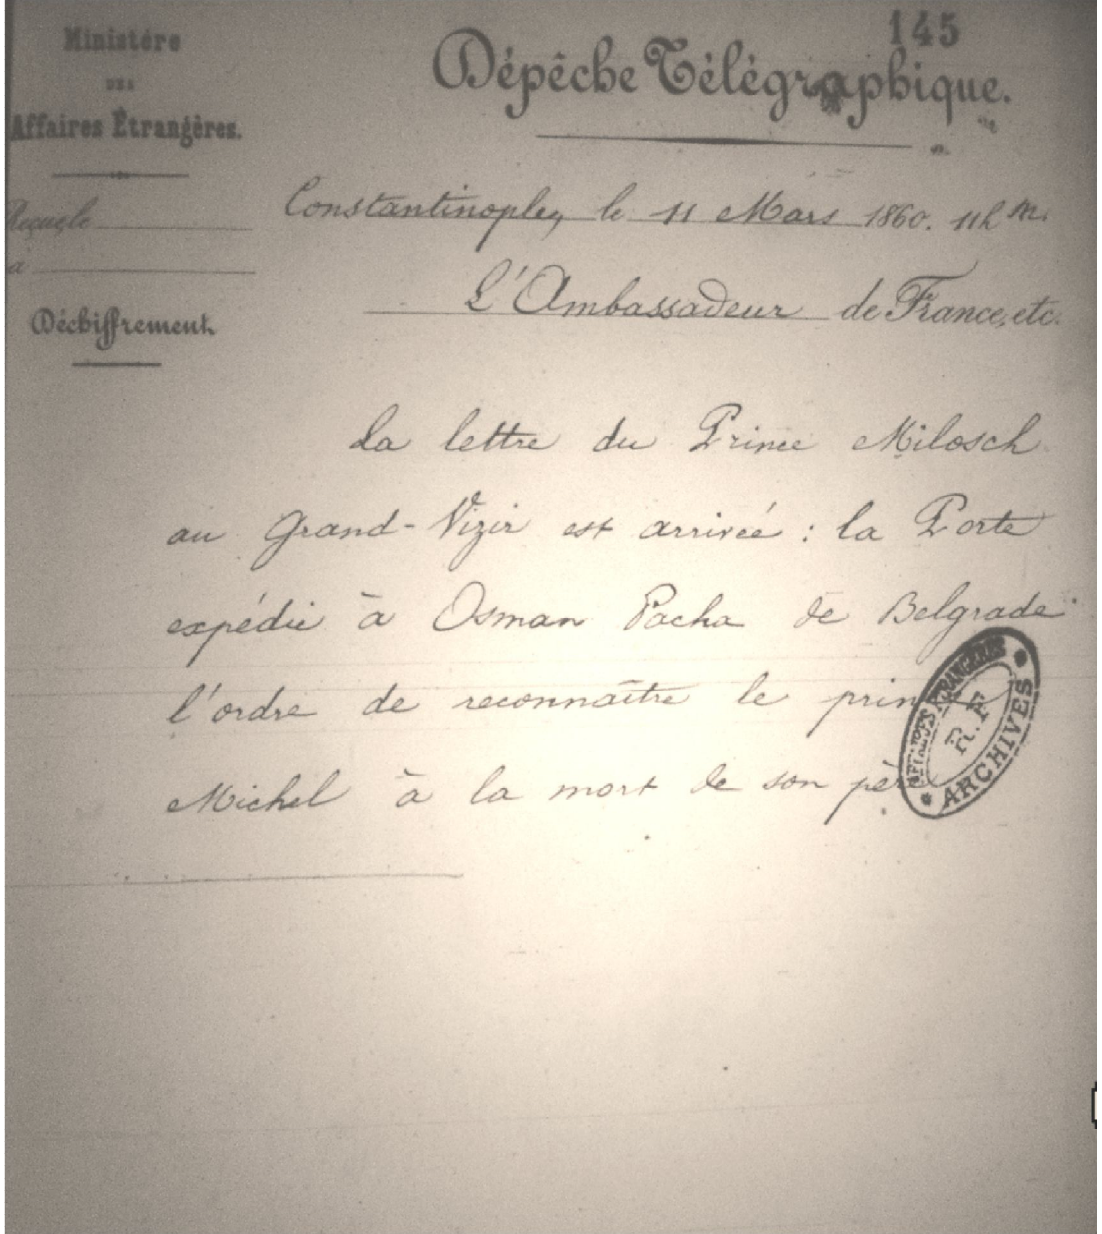 145
Ministère
DES
Affaires Étrangères.
Dépêche Télégraphique.
Reçue le
à
Déchiffrement
Constantinople, le 11 Mars 1860. 11h m.
L'Ambassadeur de France, etc.
La lettre du Prince Milosch
au Grand-Vizir est arrivée : la Porte
expédie à Osman Pacha de Belgrade
l'ordre de reconnaître le prin
Michel à la mort de son pèr
AFFAIRES ETRANGERES
R.F
ARCHIVES